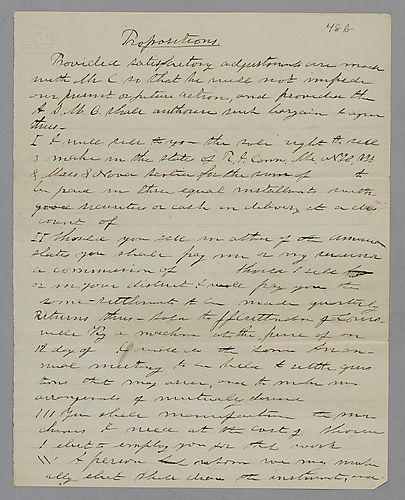 486
Propositions.
Provided satisfactory adjustments are made
with Mr C so that he will not impede
our present or future actions, and provided the
A. S. M. C. shall authorise such bargain to agree
thus—
I I will sell to you the sole right to sell
& make in the state of R.I. Conn. Me N.H. Vt
& Mass & Nova Scotia for the sum of to
be paid in three equal installments with
good securities or cash on delivery at a dis
count of
II Should you sell in other of the
states you shall pay me or my
a commission of Should I sell
or in your district I will pay you the
same settlements to be made quarterly
Returns thus— Sold to
a machine at the price of on
day of I will do the same An an-
nual meeting to be held to settle ques
tions that may arise, and to make new
arrangements if mutually desired
III You shall manufacture the ma
chines I need at the cost of should
I elect to employ you for that work
A person whom we may mutu
ally elect shall clean the instruments, and